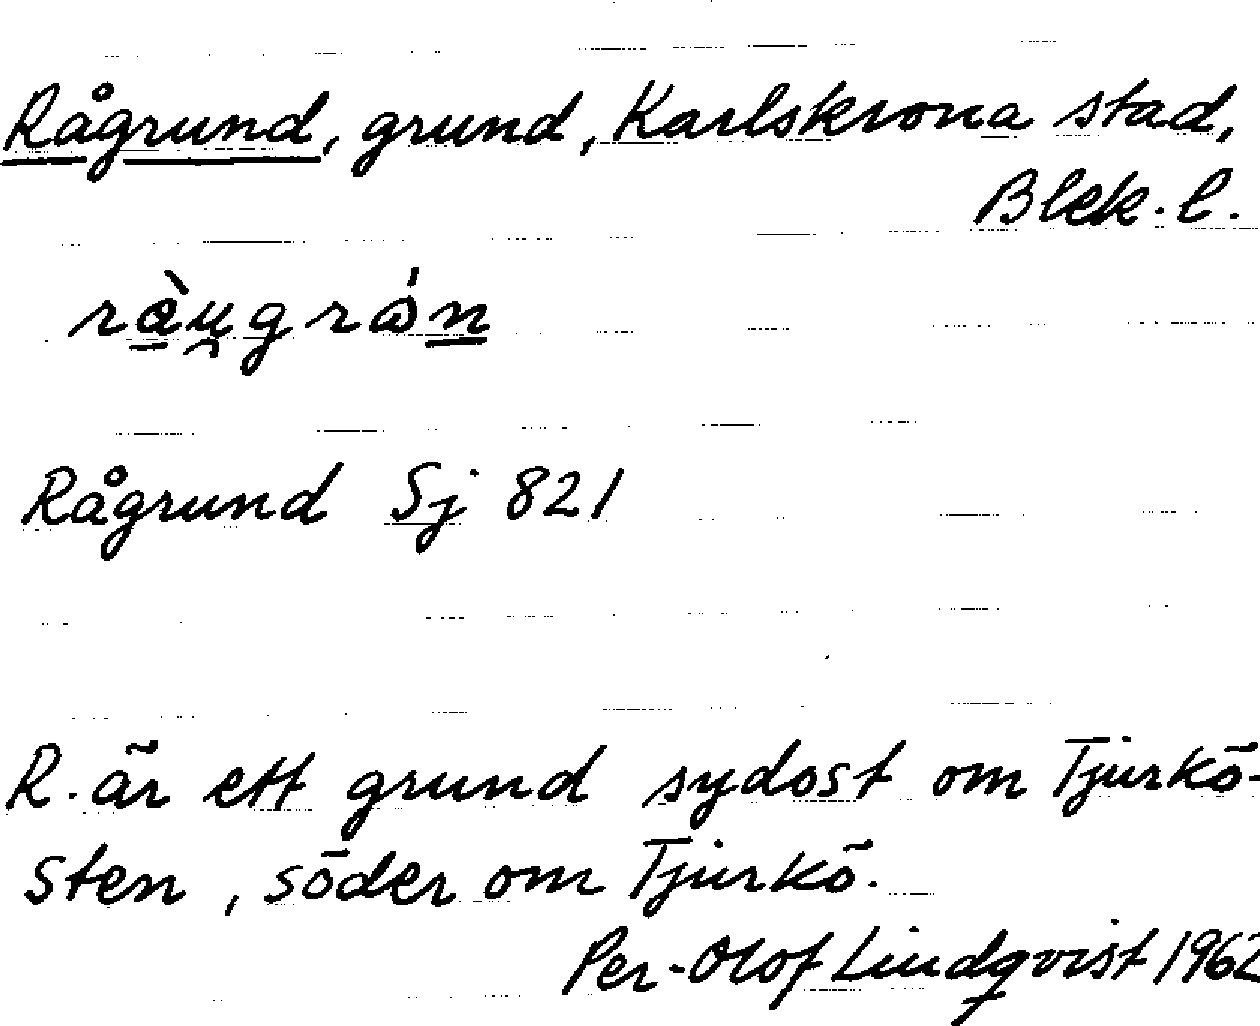 Rågrund, grund, Karlskrona stad,
Blek. l.
Rågrund Sj 821
R. är ett grund sydost om Tjurkö-
sten, söder om Tjurkö.
Per-Olof Lindqvist 1962